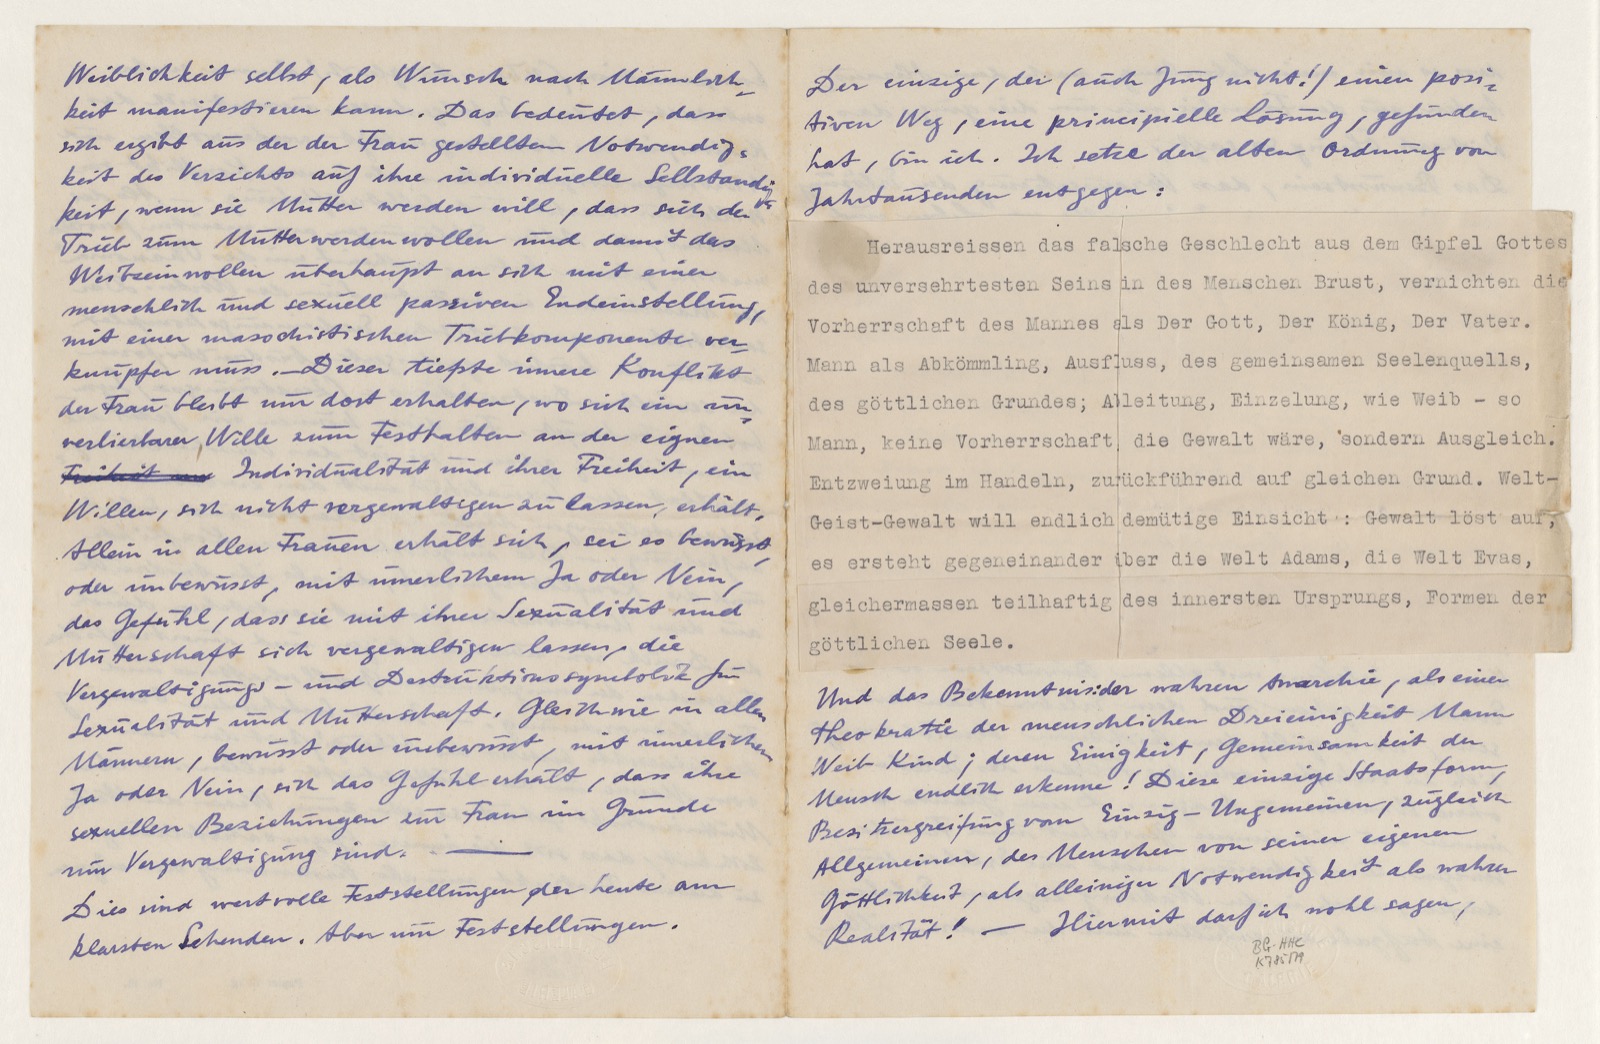 Weiblichkeit selbst, als Wunsch nach Männlich-
keit manifestieren kann. Das bedeutet, dass
sich ergibt aus der der Frau gestellten Notwendig-
keit des Verzichts auf ihre individuelle Selbständig-
keit, wenn sie Mutter werden will, dass sich der
Trieb zum Mutterwerdenwollen und damit das
Weibseinwollen überhaupt an sich mit einer
menschlich und sexuell passiven Endeinstellung,
mit einer masochistischen Triebkomponente ver-
knüpfen muss. — Dieser tiefste innere Konflikt
der Frau bleibt nur dort erhalten, wo sich ein un-
verlierbarer Wille zum Festhalten an der eignen
Individualität und ihrer Freiheit, ein
Willen, sich nicht vergewaltigen zu lassen, erhält.
Allein in allen Frauen erhält sich, sei es bewusst,
oder unbewusst, mit innerlichem Ja oder Nein,
das Gefühl, dass sie mit ihrer Sexualität und
Mutterschaft sich vergewaltigen lassen, die
Vergewaltigungs- und Destruktionssymbolik für
Sexualität und Mutterschaft. Gleichwie in allen
Männern, bewusst oder unbewusst, mit innerlichem
Ja oder Nein, sich das Gefühl erhält, dass ihre
sexuellen Beziehungen zur Frau im Grunde
nur Vergewaltigung sind. —
Dies sind wertvolle Feststellungen der heute am
klarsten Sehenden. Aber nur Feststellungen.
Der einzige, der (auch Jung nicht!) einen posi-
tiven Weg, eine principielle Lösung, gefunden
hat, bin ich. Ich setze der alten Ordnung von
Jahrtausenden entgegen:
Herausreissen das falsche Geschlecht aus dem Gipfel Gottes
des unversehrtesten Seins in des Menschen Brust, vernichten die
Vorherrschaft des Mannes als Der Gott, Der König, Der Vater.
Mann als Abkömmling, Ausfluss, des gemeinsamen Seelenquells,
des göttlichen Grundes; Ableitung, Einzelung, wie Weib - so
Mann, keine Vorherrschaft, die Gewalt wäre, sondern Ausgleich.
Entzweiung im Handeln, zurückführend auf gleichen Grund. Welt-
Geist-Gewalt will endlich demütige Einsicht : Gewalt löst auf,
es ersteht gegeneinander über die Welt Adams, die Welt Evas,
gleichermassen teilhaftig des innersten Ursprungs, Formen der
göttlichen Seele.
Und das Bekenntnis: der wahren Anarchie, als einer
Theokratie der menschlichen Dreieinigkeit Mann
Weib Kind; deren Einigkeit, Gemeinsamkeit der
Mensch endlich erkenne! Diese einzige Staatsform,
Besitzergreifung vom Einzig-Ungemeinen, zugleich
Allgemeinen, des Menschen von seiner eigenen
Göttlichkeit, als alleiniger Notwendigkeit als wahrer
Realität! — Hiermit darf ich wohl sagen,
BG-HHC
K785/79